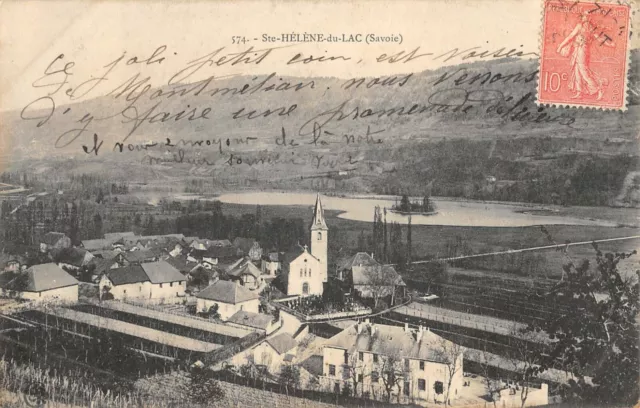 574. - Ste-HÉLÈNE-du-LAC (Savoie)
Ce joli petit coin, est voisin
de Montmélian, nous venons
d'y faire une promenade
et vous envoyons de là notre
meilleur souvenir
10c